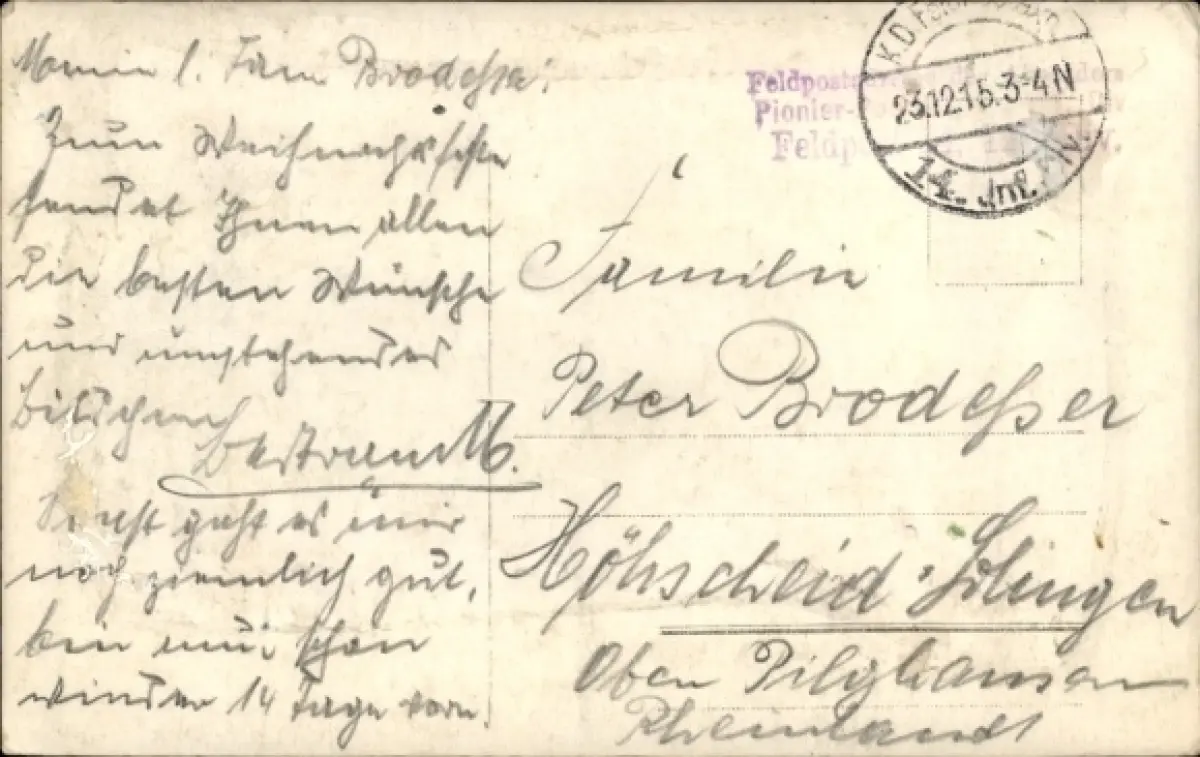 Meine l. Fam Brodeßer!
Zum Weihnachtsfeste
sendet Ihnen allen
die besten Wünsche
und umstehendes
Bildchen
Bertram M.
Sonst geht es mir
noch ziemlich gut,
bin nun schon
wieder 14 Tage vorn.
K.D. Feld
23.12.15.3-4N
14. Inf. Div.
Feldpost
Pionier-
Feldp
Familie
Peter Brodeßer
Höhscheid Solingen
Oben Pilghausen
Rheinland